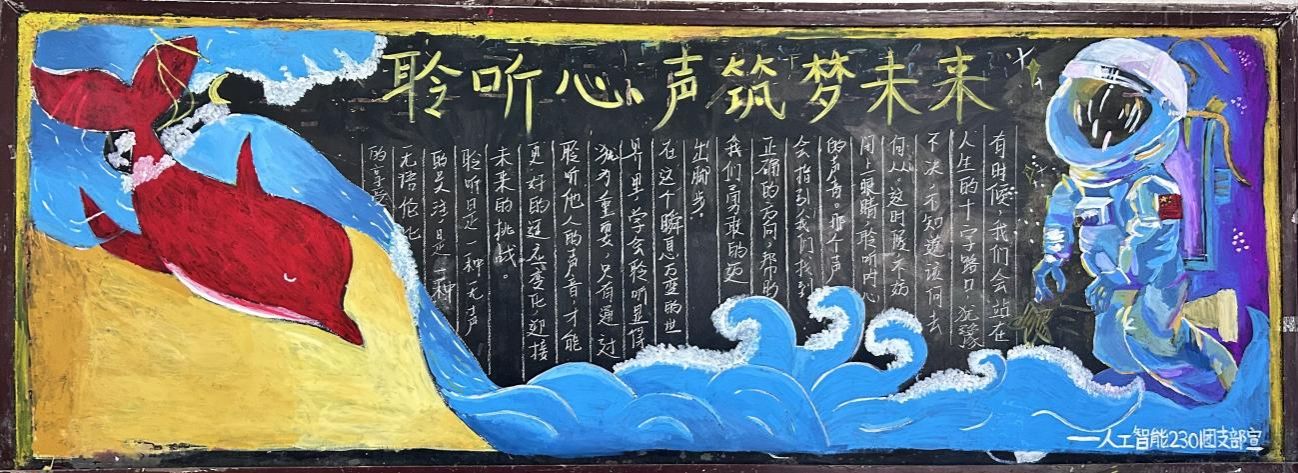 聆听心声筑梦未来
有时候，我们会站在
人生的十字路口，犹豫
不决，不知道该何去
何从，这时候不妨
闭上眼睛，聆听内心
的声音。那个声
会指引我们找到
正确的方向，帮助
我们勇敢的迈
出脚步。
在这个瞬息万变的世
界里，学会聆听显得
尤为重要，只有通过
聆听他人的声音，才能
更好的适应变化，迎接
未来的挑战。
聆听是一种无声
的关注，是一种
无语伦比
的享受
一人工智能2301团支部宣